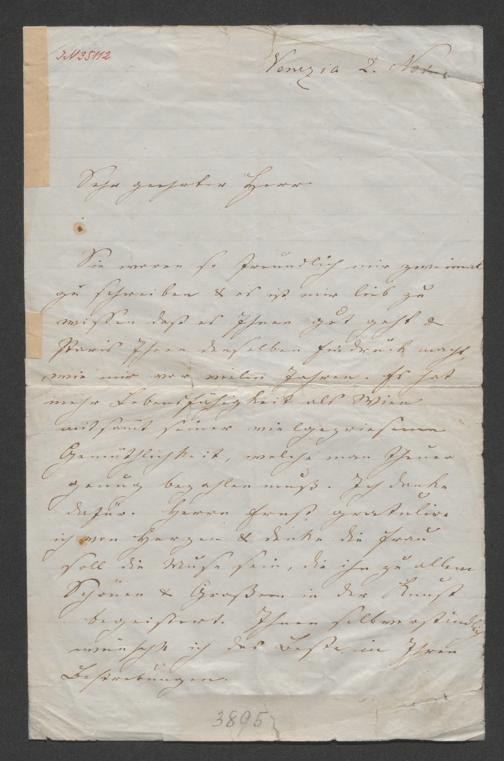 JN 35112
Venezia 2. Nov.
Sehr geehrter Herr
Sie waren so freundlich mir zweimal
zu schreiben & es ist mir lieb zu
wissen daß es Ihnen gut geht &
Paris Ihnen denselben Eindruck macht
wie mir vor vielen Jahren. Es hat
mehr Lebensfähigkeit als Wien
mitsammt seiner vielgepriesenen
Gemüthlichkeit, welche man theuer
genug bezahlen muß. Ich danke
dafür. Herrn Ernst gratulire
ich von Herzen & denke die Frau
soll die Muse sein, die ihn zu allem
Schönen & Großem in der Kunst
begeistert. Ihnen selbverständlich
wünsche ich das Beste in Ihren
Bestrebungen.
3895